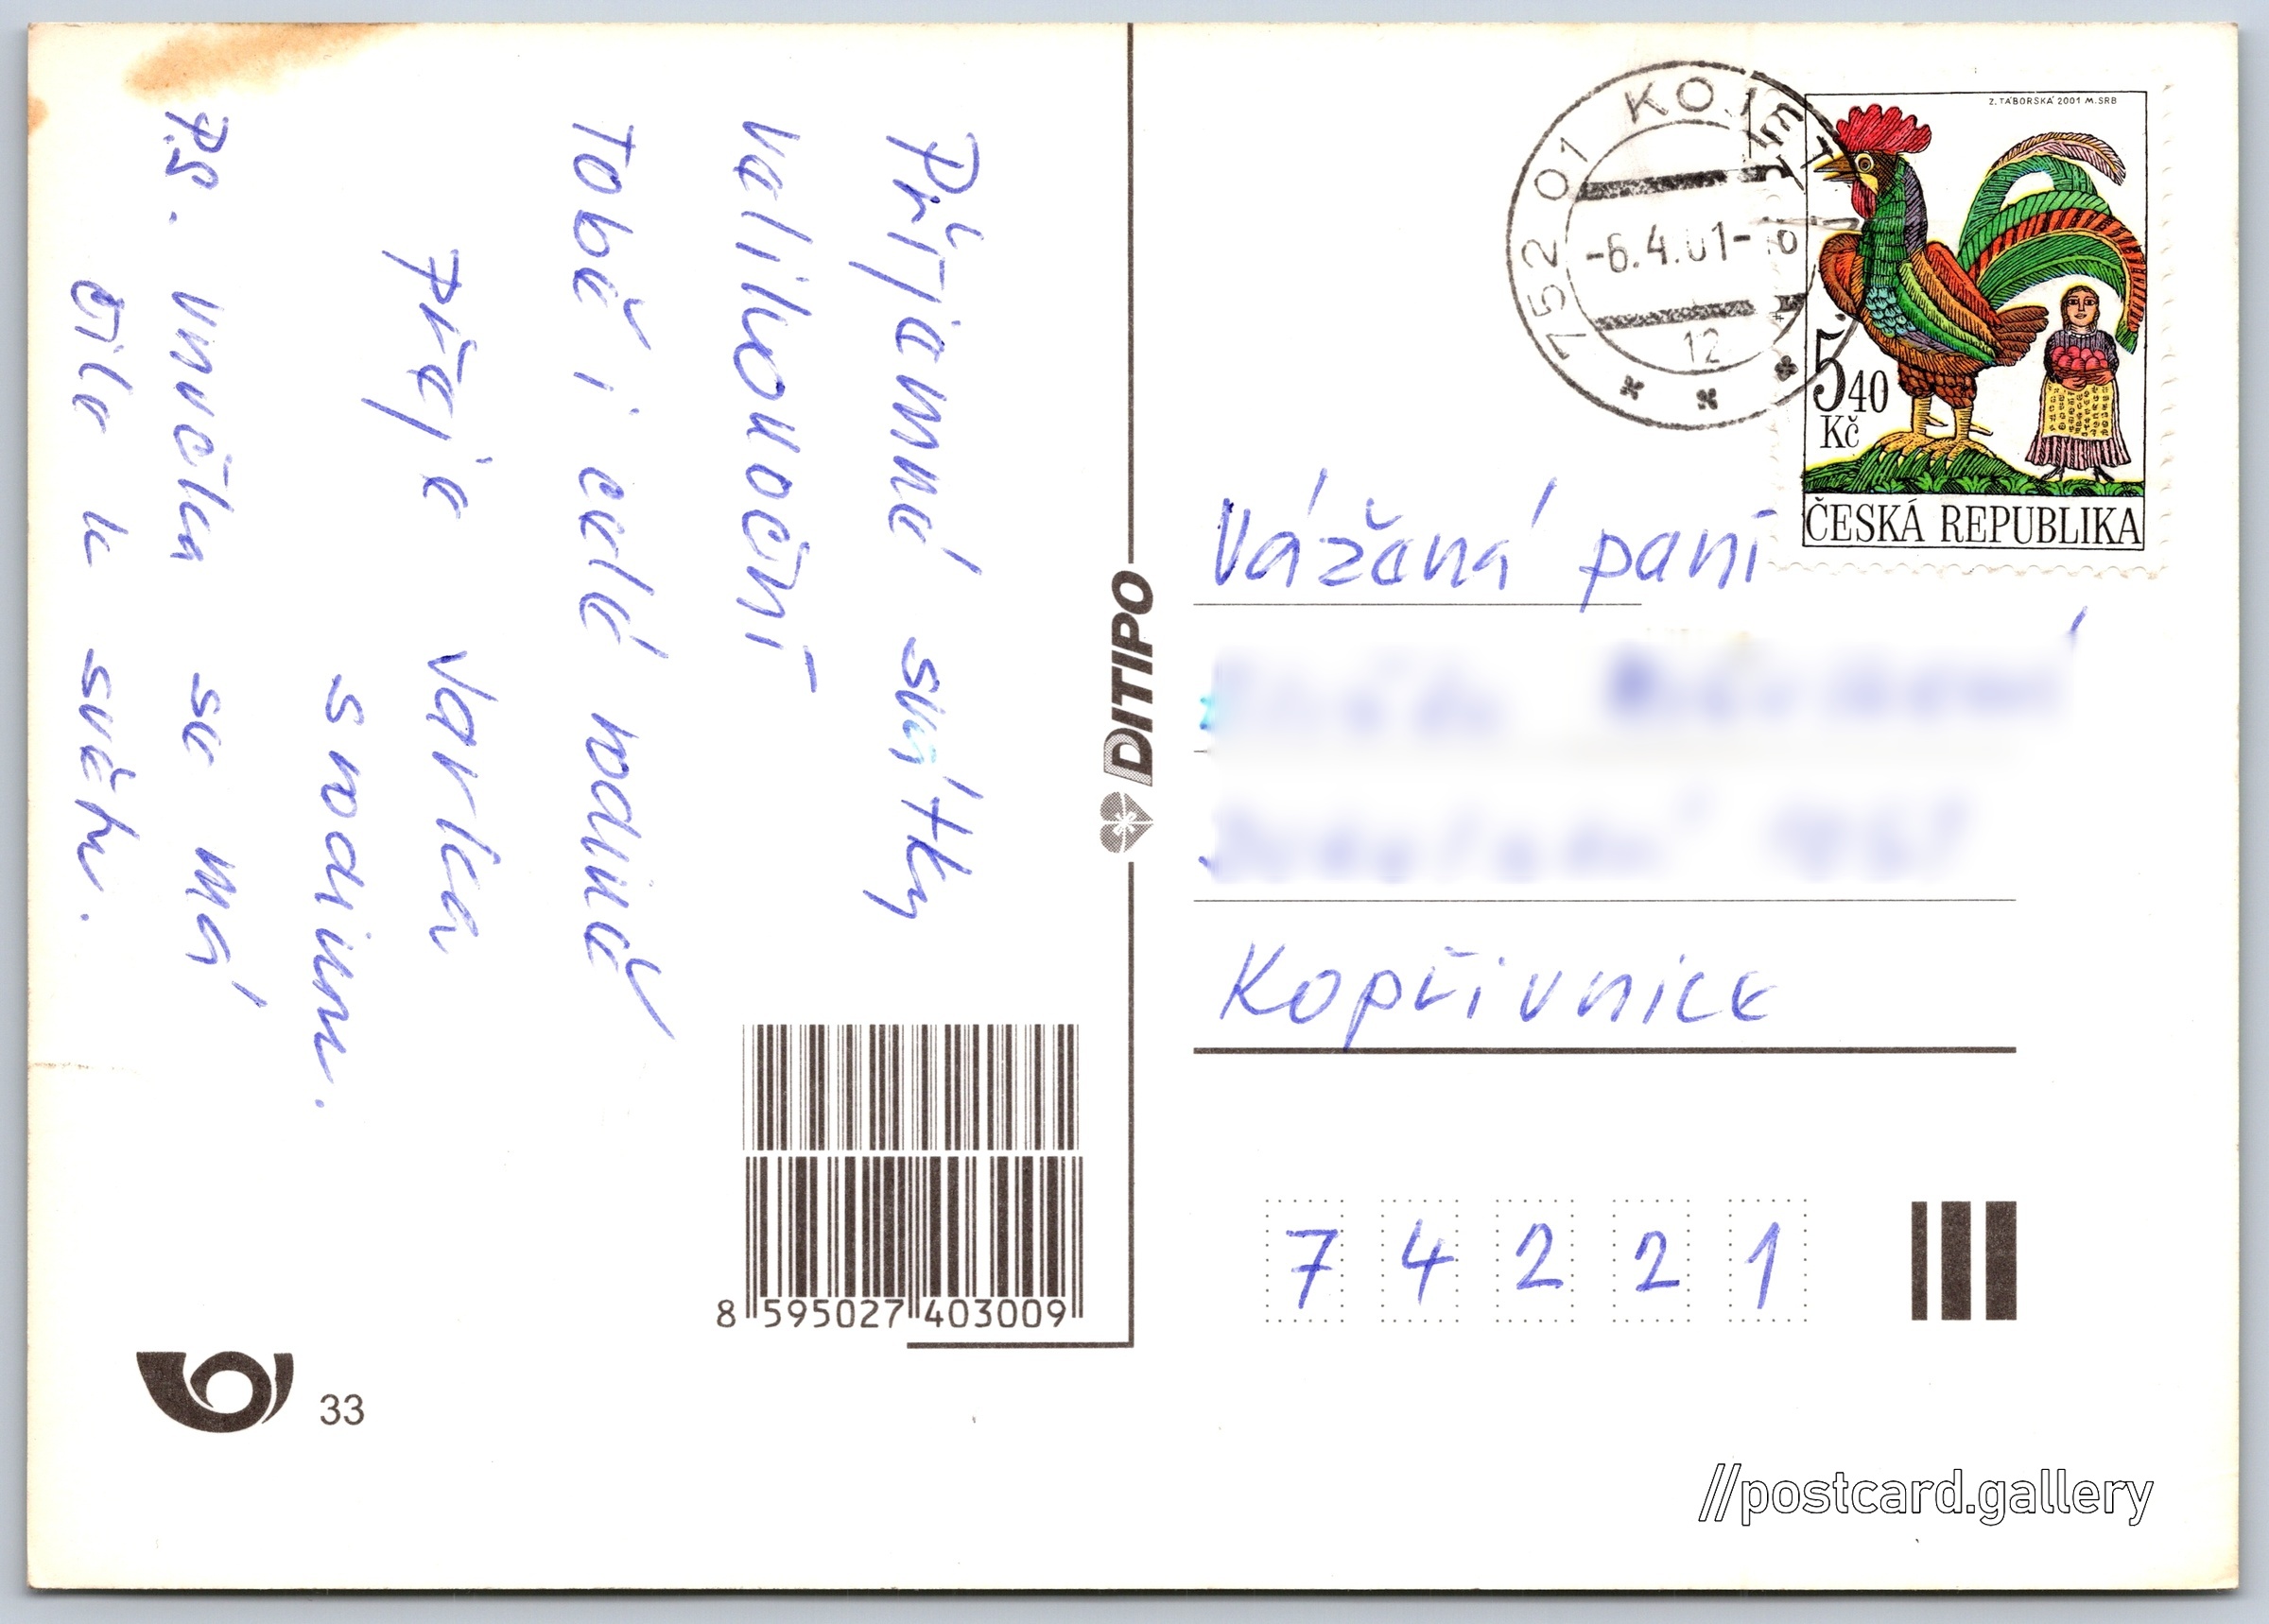 Příjemné svátky
velikonoční
Tobě i celé rodině
přeje Jarka
s rodinou.
P.S. vnučka se má
čile k světu.
DITIPO
8 595027 403009
33
752 01 KOJETÍN
-6.4.01-
12
Z. TÁBORSKÁ 2001 M. SRB
5 40
Kč
ČESKÁ REPUBLIKA
Vážaná paní
Kopřivnice
7 4 2 2 1
//postcard.gallery